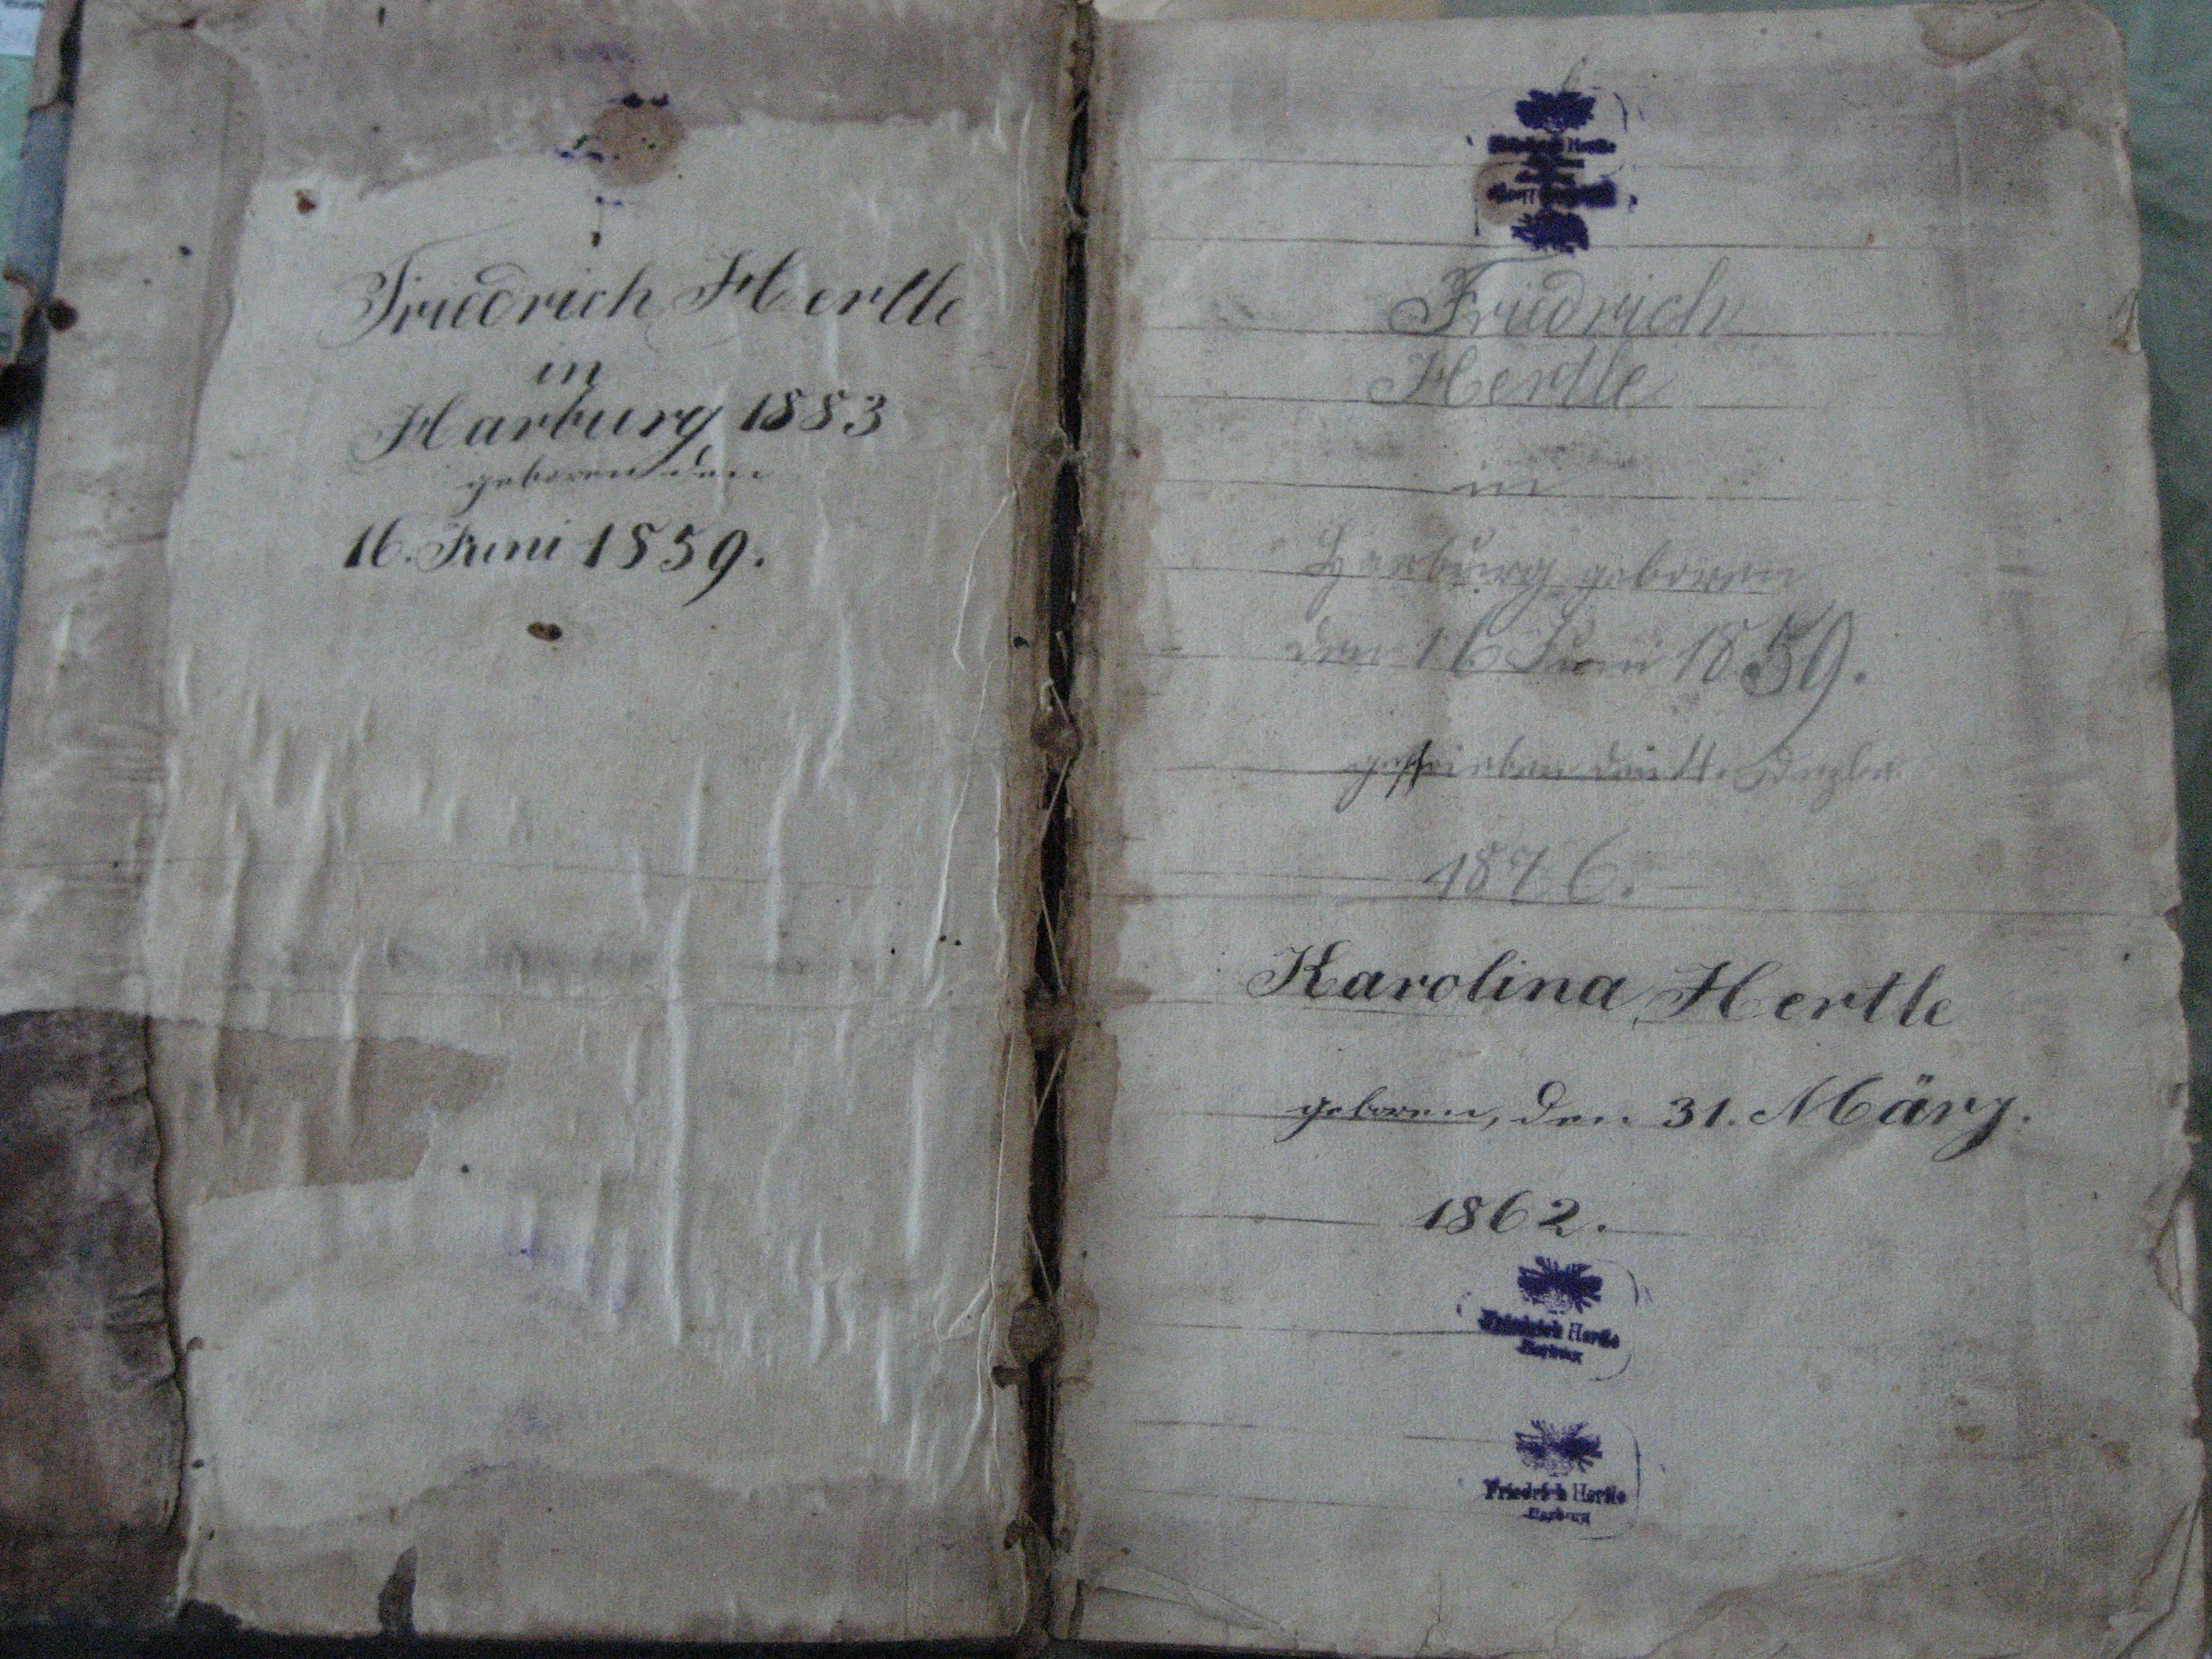 Friedrich Hertle
in
Harburg 1883
geboren den
16. Juni 1859.
Hertle
Friedrich
Hertle
in
Harburg geboren
den 16 Juni 1859.
den
1876.
Karolina Hertle
geboren, den 31. März.
1862.
Friedrich Hertle
Harburg
Friedrich Hertle
Harburg